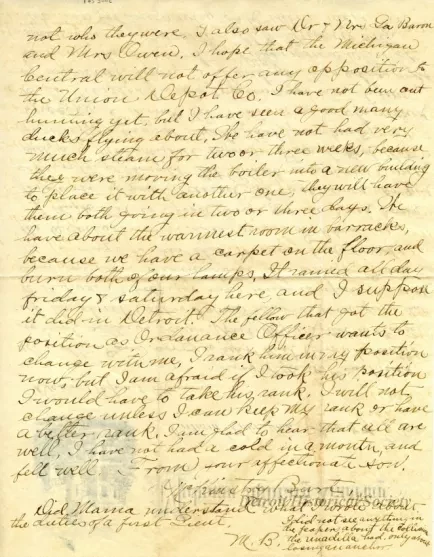 not who they were. I also saw Dr & Mrs La Baron
and Mrs Owen. I hope that the Michigan
Central will not offer any opposition to
the Union Depot Co. I have not been out
hunning yet, but I have seen a good many
ducks flying about. We have not had very
much steam for two or three weeks, because
they were moving the boiler into a new building
to place it with another one, they will have
them both going in two or three days. We
have about the warmest room in barracks,
because we have a carpet on the floor, and
burn both of our lamps. It rained all day
friday & saturday here and I suppose
it did in Detroit. The fellow that got the
position as Ordanance Officer wants to
change with me, I rank him in my position
now, but I am afraid if I took his position
I would have to take his rank. I will not
change unless I can keep my rank or have
a better rank. I am glad to hear that all are
well, I have not had a cold in a month, and
fell well From your affectionate son.
Did Mama understand what I wrote about
the duties of a first Lieut.
M. B.
I did not see anything in
the paper about the collision
the unadilla had, only
losing an anchor